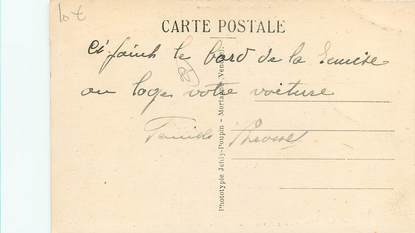 lot
CARTE POSTALE
ci-joint le bord de la Remise
ou loge votre voiture
Famille
Phototypie Jehly-Poupin - Mortagne, Vendée